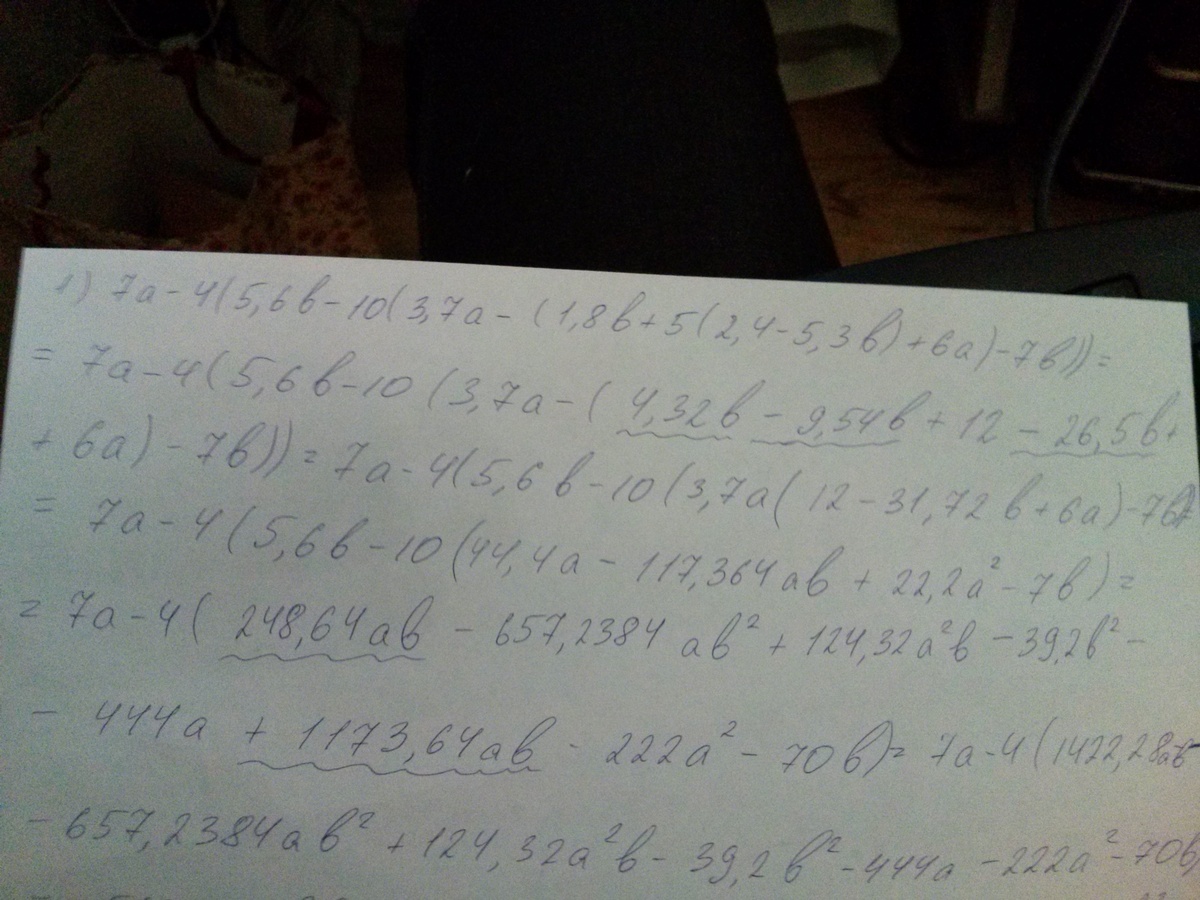 1) 7а-4(5,6в-10(3,7а-(1,8в+5(2,4-5,3в)+6а)-7в))=
= 7а-4(5,6в-10(3,7а-(4,32в-9,54в+12-26,5в+
+6а)-7в))=7а-4(5,6в-10(3,7а(12-31,72в+6а)-7в))
= 7а-4(5,6в-10(44,4а-117,364ав+22,2а²-7в)=
= 7а-4(248,64ав-657,2384ав²+124,32а²в-39,2в²-
- 444а+1173,64ав-222а²-70в)=7а-4(1422,28ав-
-657,2384ав²+124,32а²в-39,2в²-444а-222а²-70в)